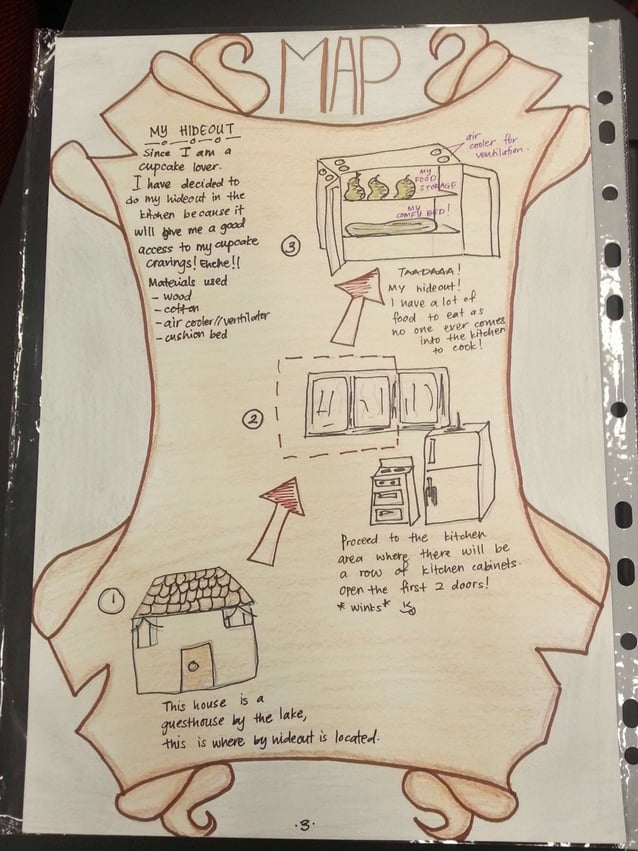 MAP
MY HIDEOUT
Since I am a
cupcake lover.
I have decided to
do my hideout in the
kitchen because it
will give me a good
access to my cupcake
cravings! Enehe!!
Materials used
- wood
- cotton
- air cooler//ventilator
- cushion bed
air
cooler for
ventilation.
MY
FOOD
STORAGE
MY
COMFY BED!
3
TAADAAA!
My hideout!
I have a lot of
food to eat as
no one ever comes
into the kitchen
to cook!
2
Proceed to the kitchen
area where there will be
a row of kitchen cabinets.
open the first 2 doors!
*winks*
1
This house is a
guesthouse by the lake,
this is where by hideout is located.
·3·